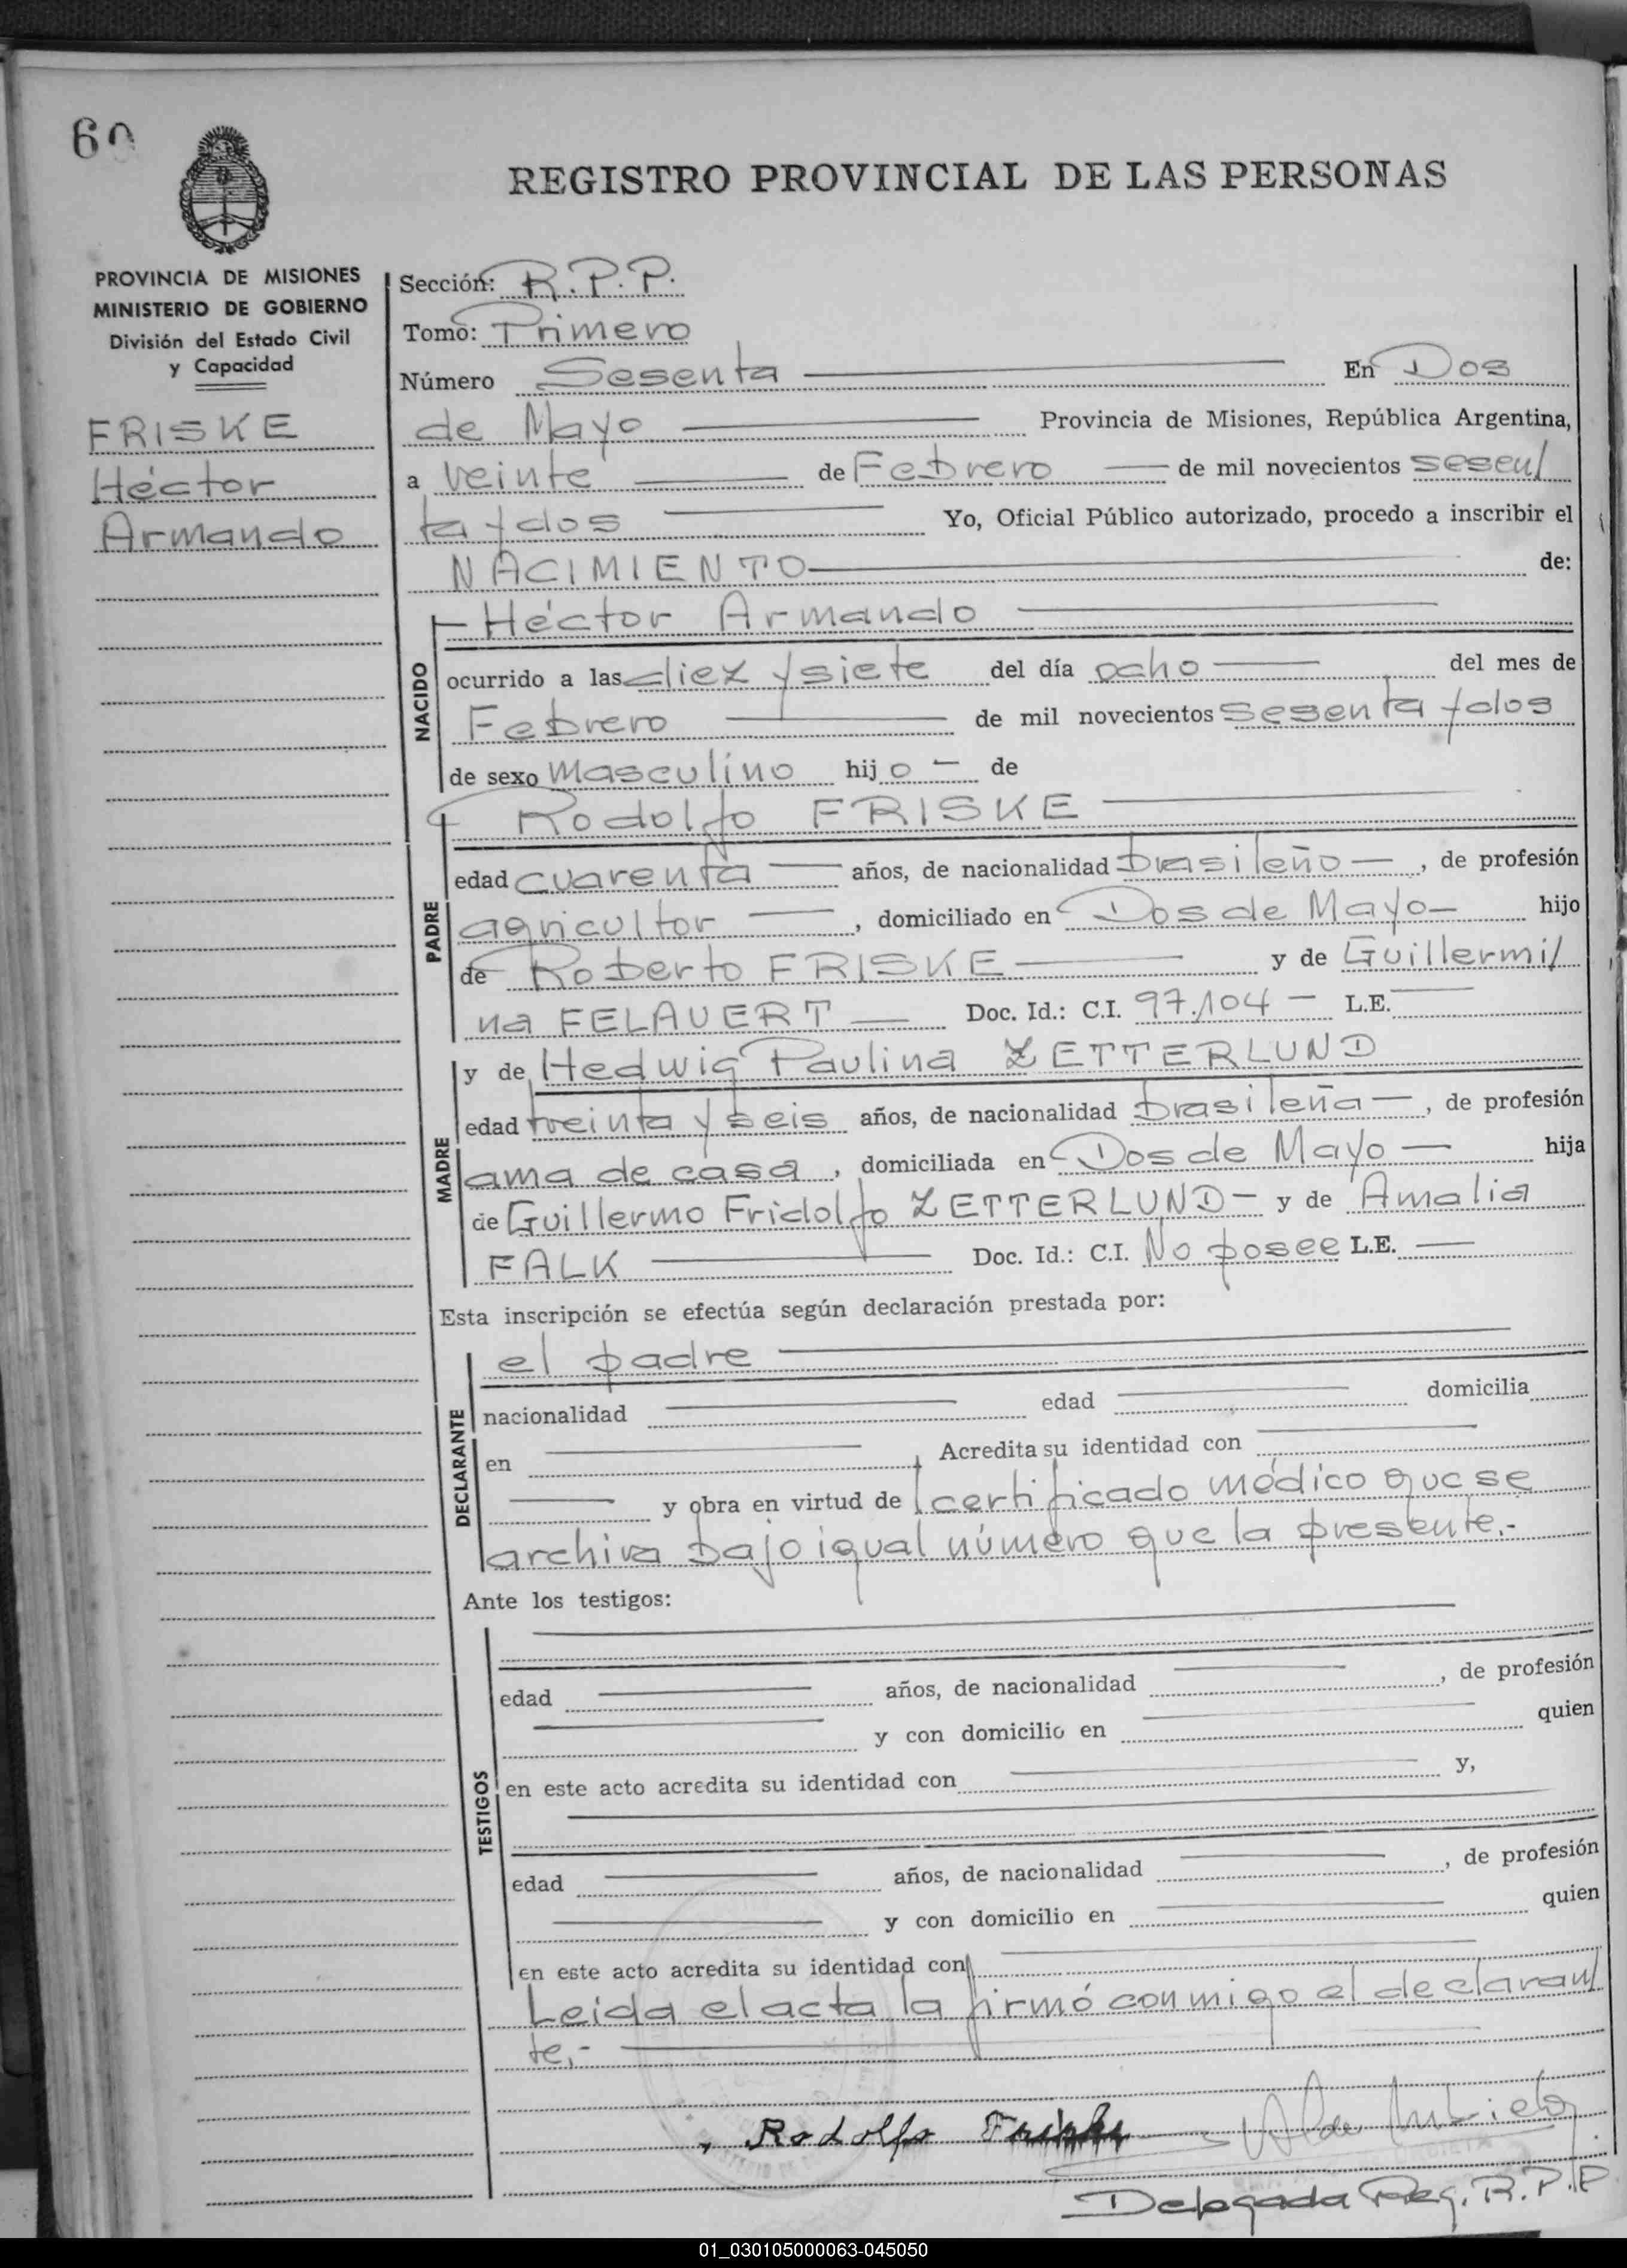 60
REGISTRO PROVINCIAL DE LAS PERSONAS
PROVINCIA DE MISIONES
MINISTERIO DE GOBIERNO
División del Estado Civil
y Capacidad
FRISKE
Héctor
Armando
Sección: R.P.P.
Tomo: Primero
Número Sesenta En Dos
de Mayo Provincia de Misiones, República Argentina,
a veinte de Febrero de mil novecientos sesen/
ta y dos Yo, Oficial Público autorizado, procedo a inscribir el
NACIMIENTO de:
NACIDO
Héctor Armando
ocurrido a las diez y siete del día ocho del mes de
Febrero de mil novecientos sesenta y dos
de sexo masculino hijo de
PADRE
Rodolfo FRISKE
edad cuarenta años, de nacionalidad brasileño, de profesión
agricultor, domiciliado en Dos de Mayo hijo
de Roberto FRISKE y de Guillermi/
na FELAUERT Doc. Id.: C.I. 97.104 L.E.
MADRE
y de Hedwig Paulina ZETTERLUND
edad treinta y seis años, de nacionalidad brasileña, de profesión
ama de casa, domiciliada en Dos de Mayo hija
de Guillermo Fridolfo ZETTERLUND y de Amalia
FALK Doc. Id.: C.I. No posee L.E.
Esta inscripción se efectúa según declaración prestada por:
DECLARANTE
el padre
nacionalidad edad domicilia
en Acredita su identidad con
y obra en virtud de certificado médico que se
archiva bajo igual número que la presente.-
Ante los testigos:
TESTIGOS
edad años, de nacionalidad , de profesión
y con domicilio en quien
en este acto acredita su identidad con y,
edad años, de nacionalidad , de profesión
y con domicilio en quien
en este acto acredita su identidad con
Leida el acta la firmó conmigo el declaran/
te.-
Rodolfo Friske
Delegada Reg. R.P.P
01_030105000063-045050